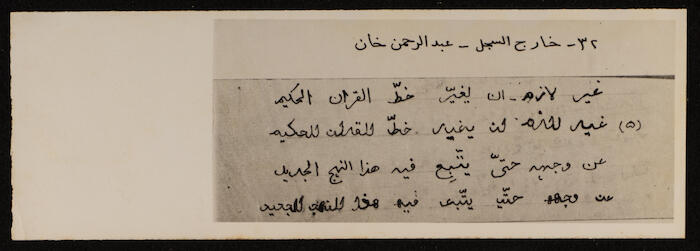 ٣٢ - خارج السجل - عبد الرحمن خان
غير لازم - ان يغيّر خطّ القران الحكيم
(٥) غير لازم ان يغير خطّ القران الحكيم
عن وجهه حتىّ يتّبع فيه هذا النهج الجديد
عن وجهه حتّى يتّبع فيه هذا النهج الجديد